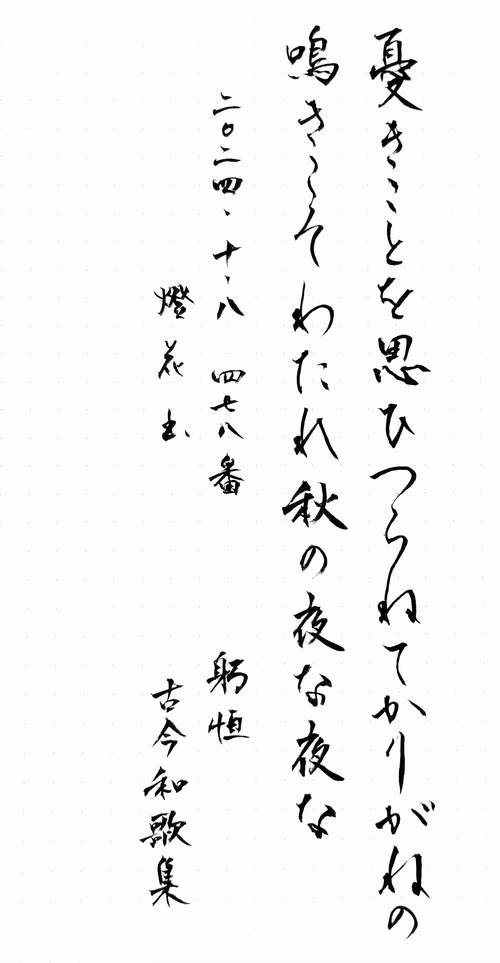 憂きことを思ひつらねてかりがねの
鳴きこそわたれ秋の夜な夜な
二〇二四、十、八 四七八番
躬恒
燈花
古今和歌集